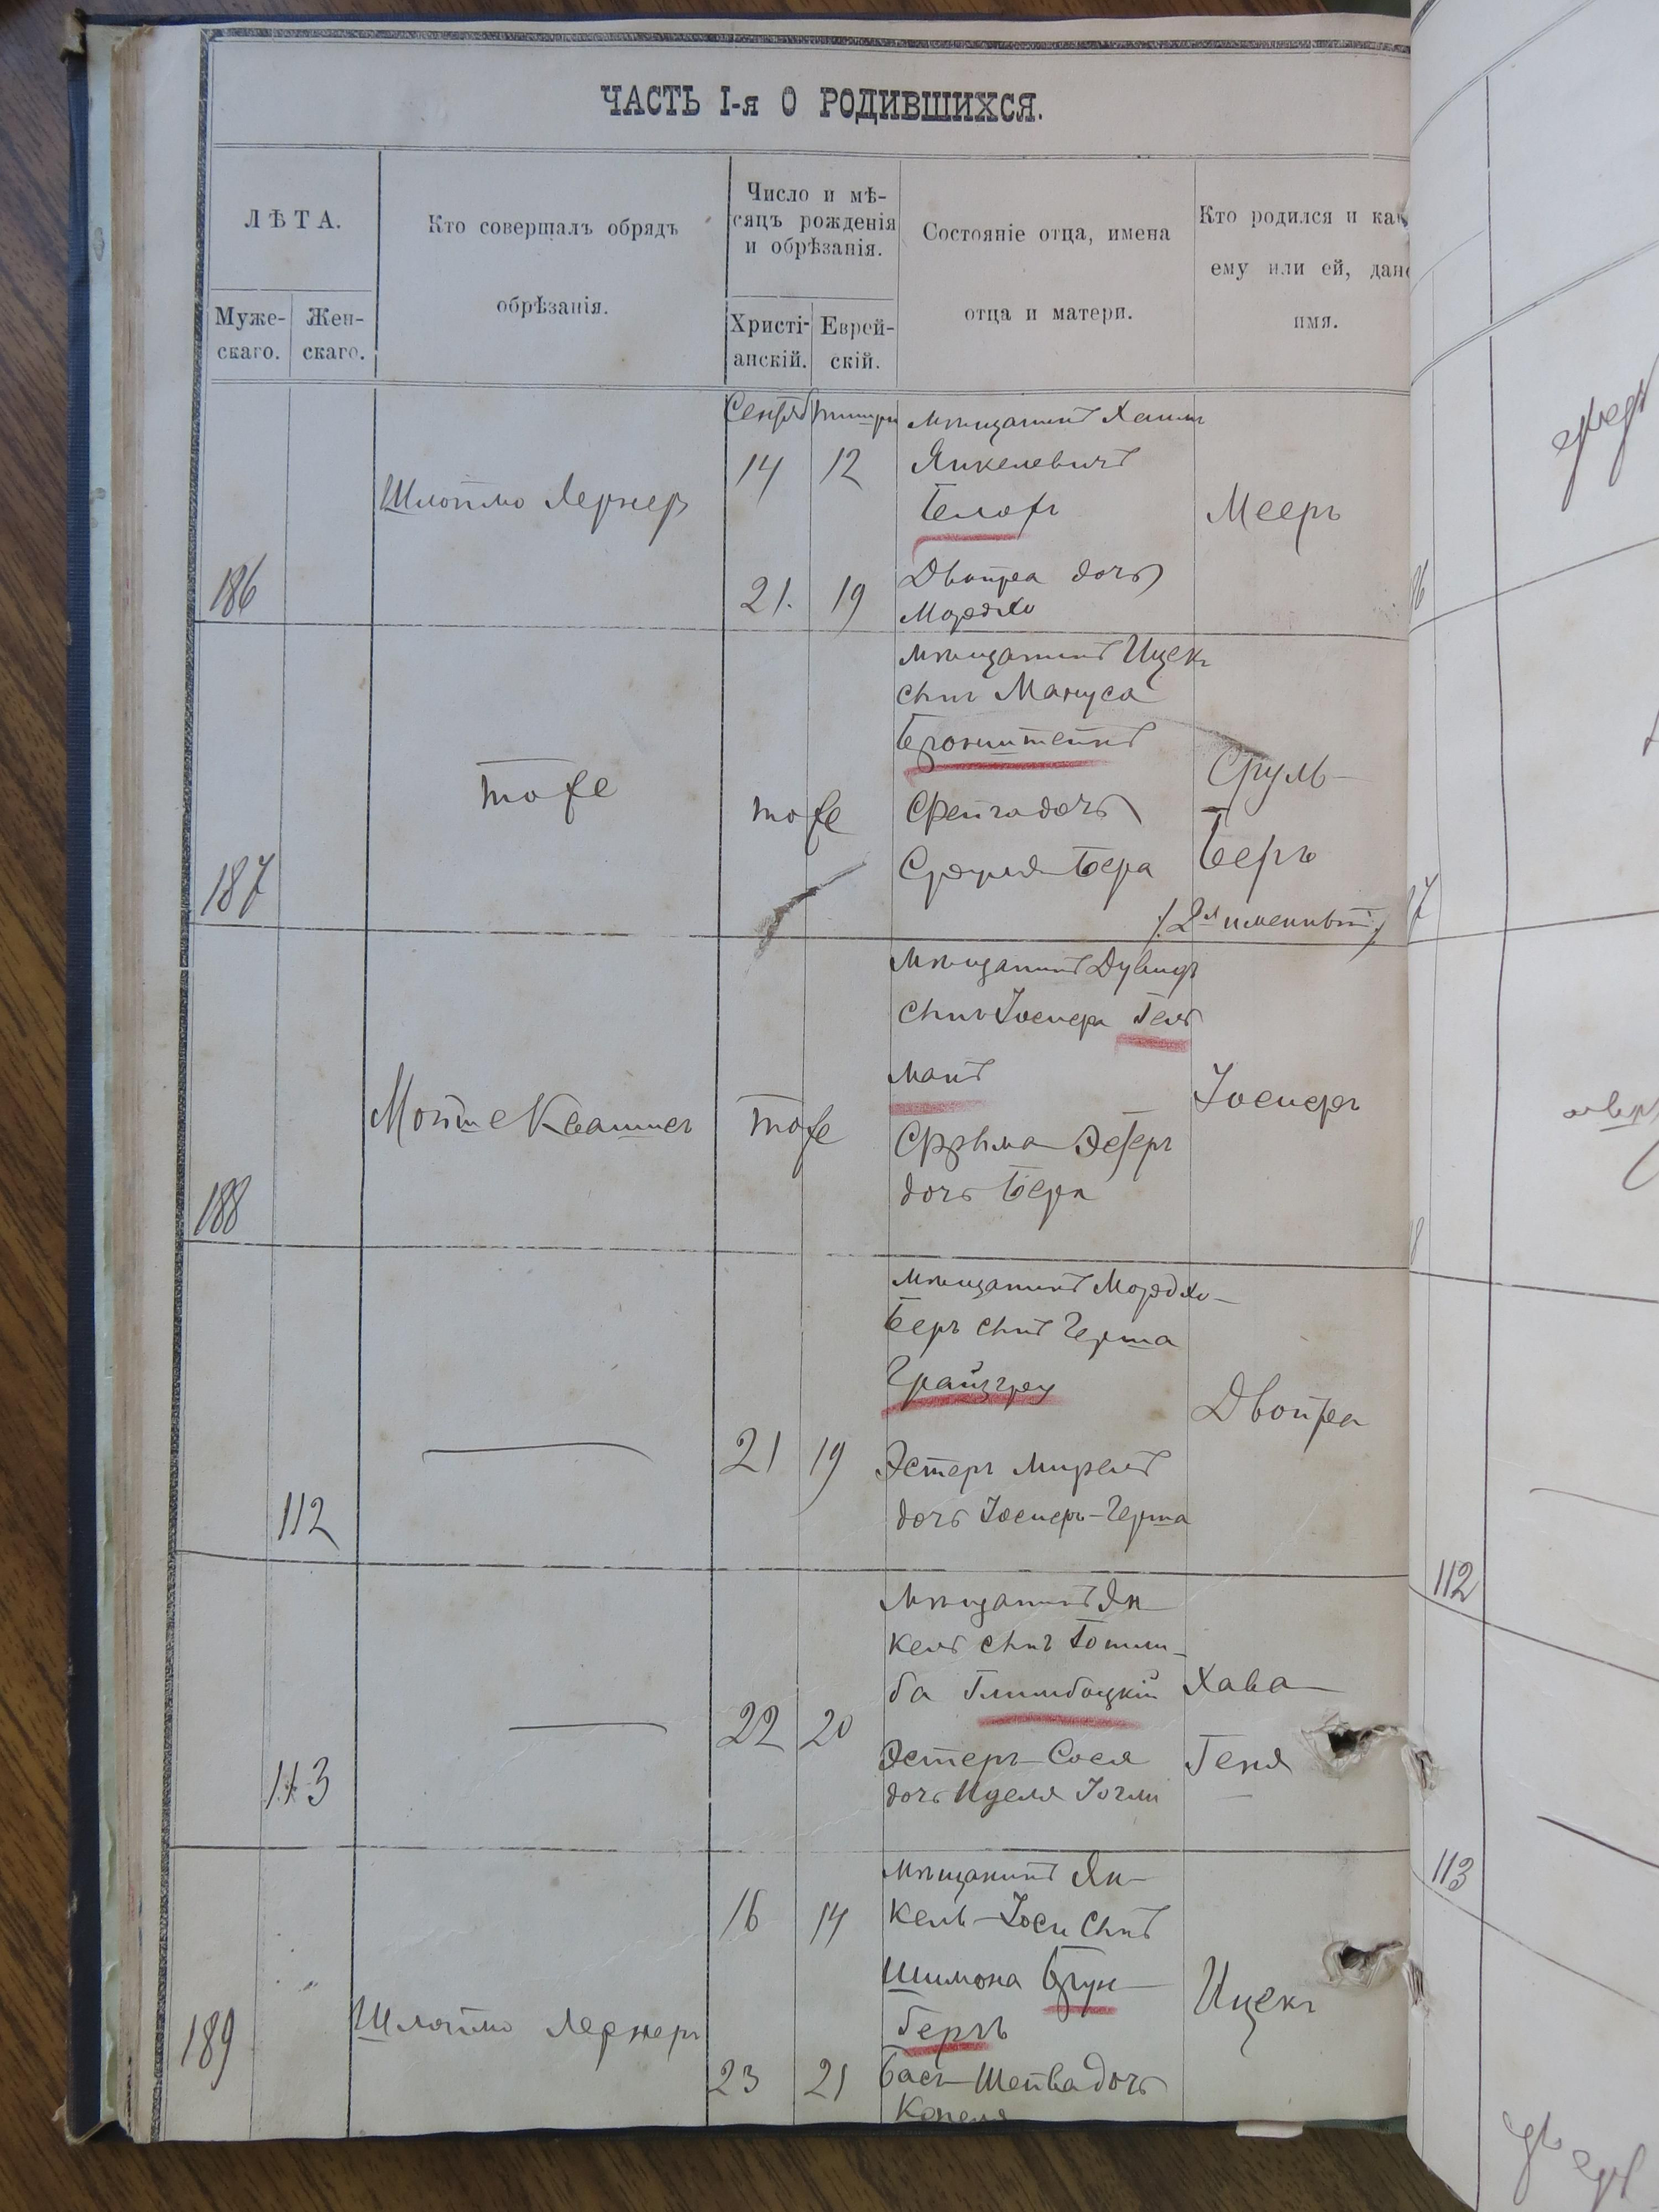 ЧАСТЬ I-я О РОДИВШИХСЯ.
ЛѢТА.
Муже-
скаго.
Жен-
скаго.
Кто совершалъ обрядъ
обрѣзанія.
Число и мѣ-
сяцъ рожденія
и обрѣзанія.
Христі-
анскій.
Еврей-
скій.
Состояніе отца, имена
отца и матери.
Кто родился и как
ему или ей, дано
имя.
186
Шлойме Лернеръ
Сентяб Тишри
14 12
21. 19
мѣщанинъ Хаимъ
Янкелевичъ
Двойра дочь
Мордко
Мееръ
187
тоже
тоже
мѣщанинъ Ицекъ
сынъ Мануса
Бронштейнъ
Фейга дочь
Сруля Бера
Сруль-
Беръ
/2х именный/
188
Мойше
тоже
мѣщанинъ Дувидъ
сынъ Іосифа Гель
манъ
Фрыма Эстеръ
дочь Бера
Іосифъ
112
21 19
мѣщанинъ Мордко-
Беръ сынъ Герша
Эстеръ Мирель
дочь Іосифъ-Герша
Двойра
113
22 20
мѣщанинъ Ян-
кель сынъ
Эстеръ-Сося
дочь Иделя
Хава-
Геня
189
Шлойме Лернеръ
16 14
23 21
мѣщанинъ Ян-
кель-Іоси сынъ
Шимона Грун-
бергъ
Бася-Шейва дочь
Копеля
Ицекъ
112
113